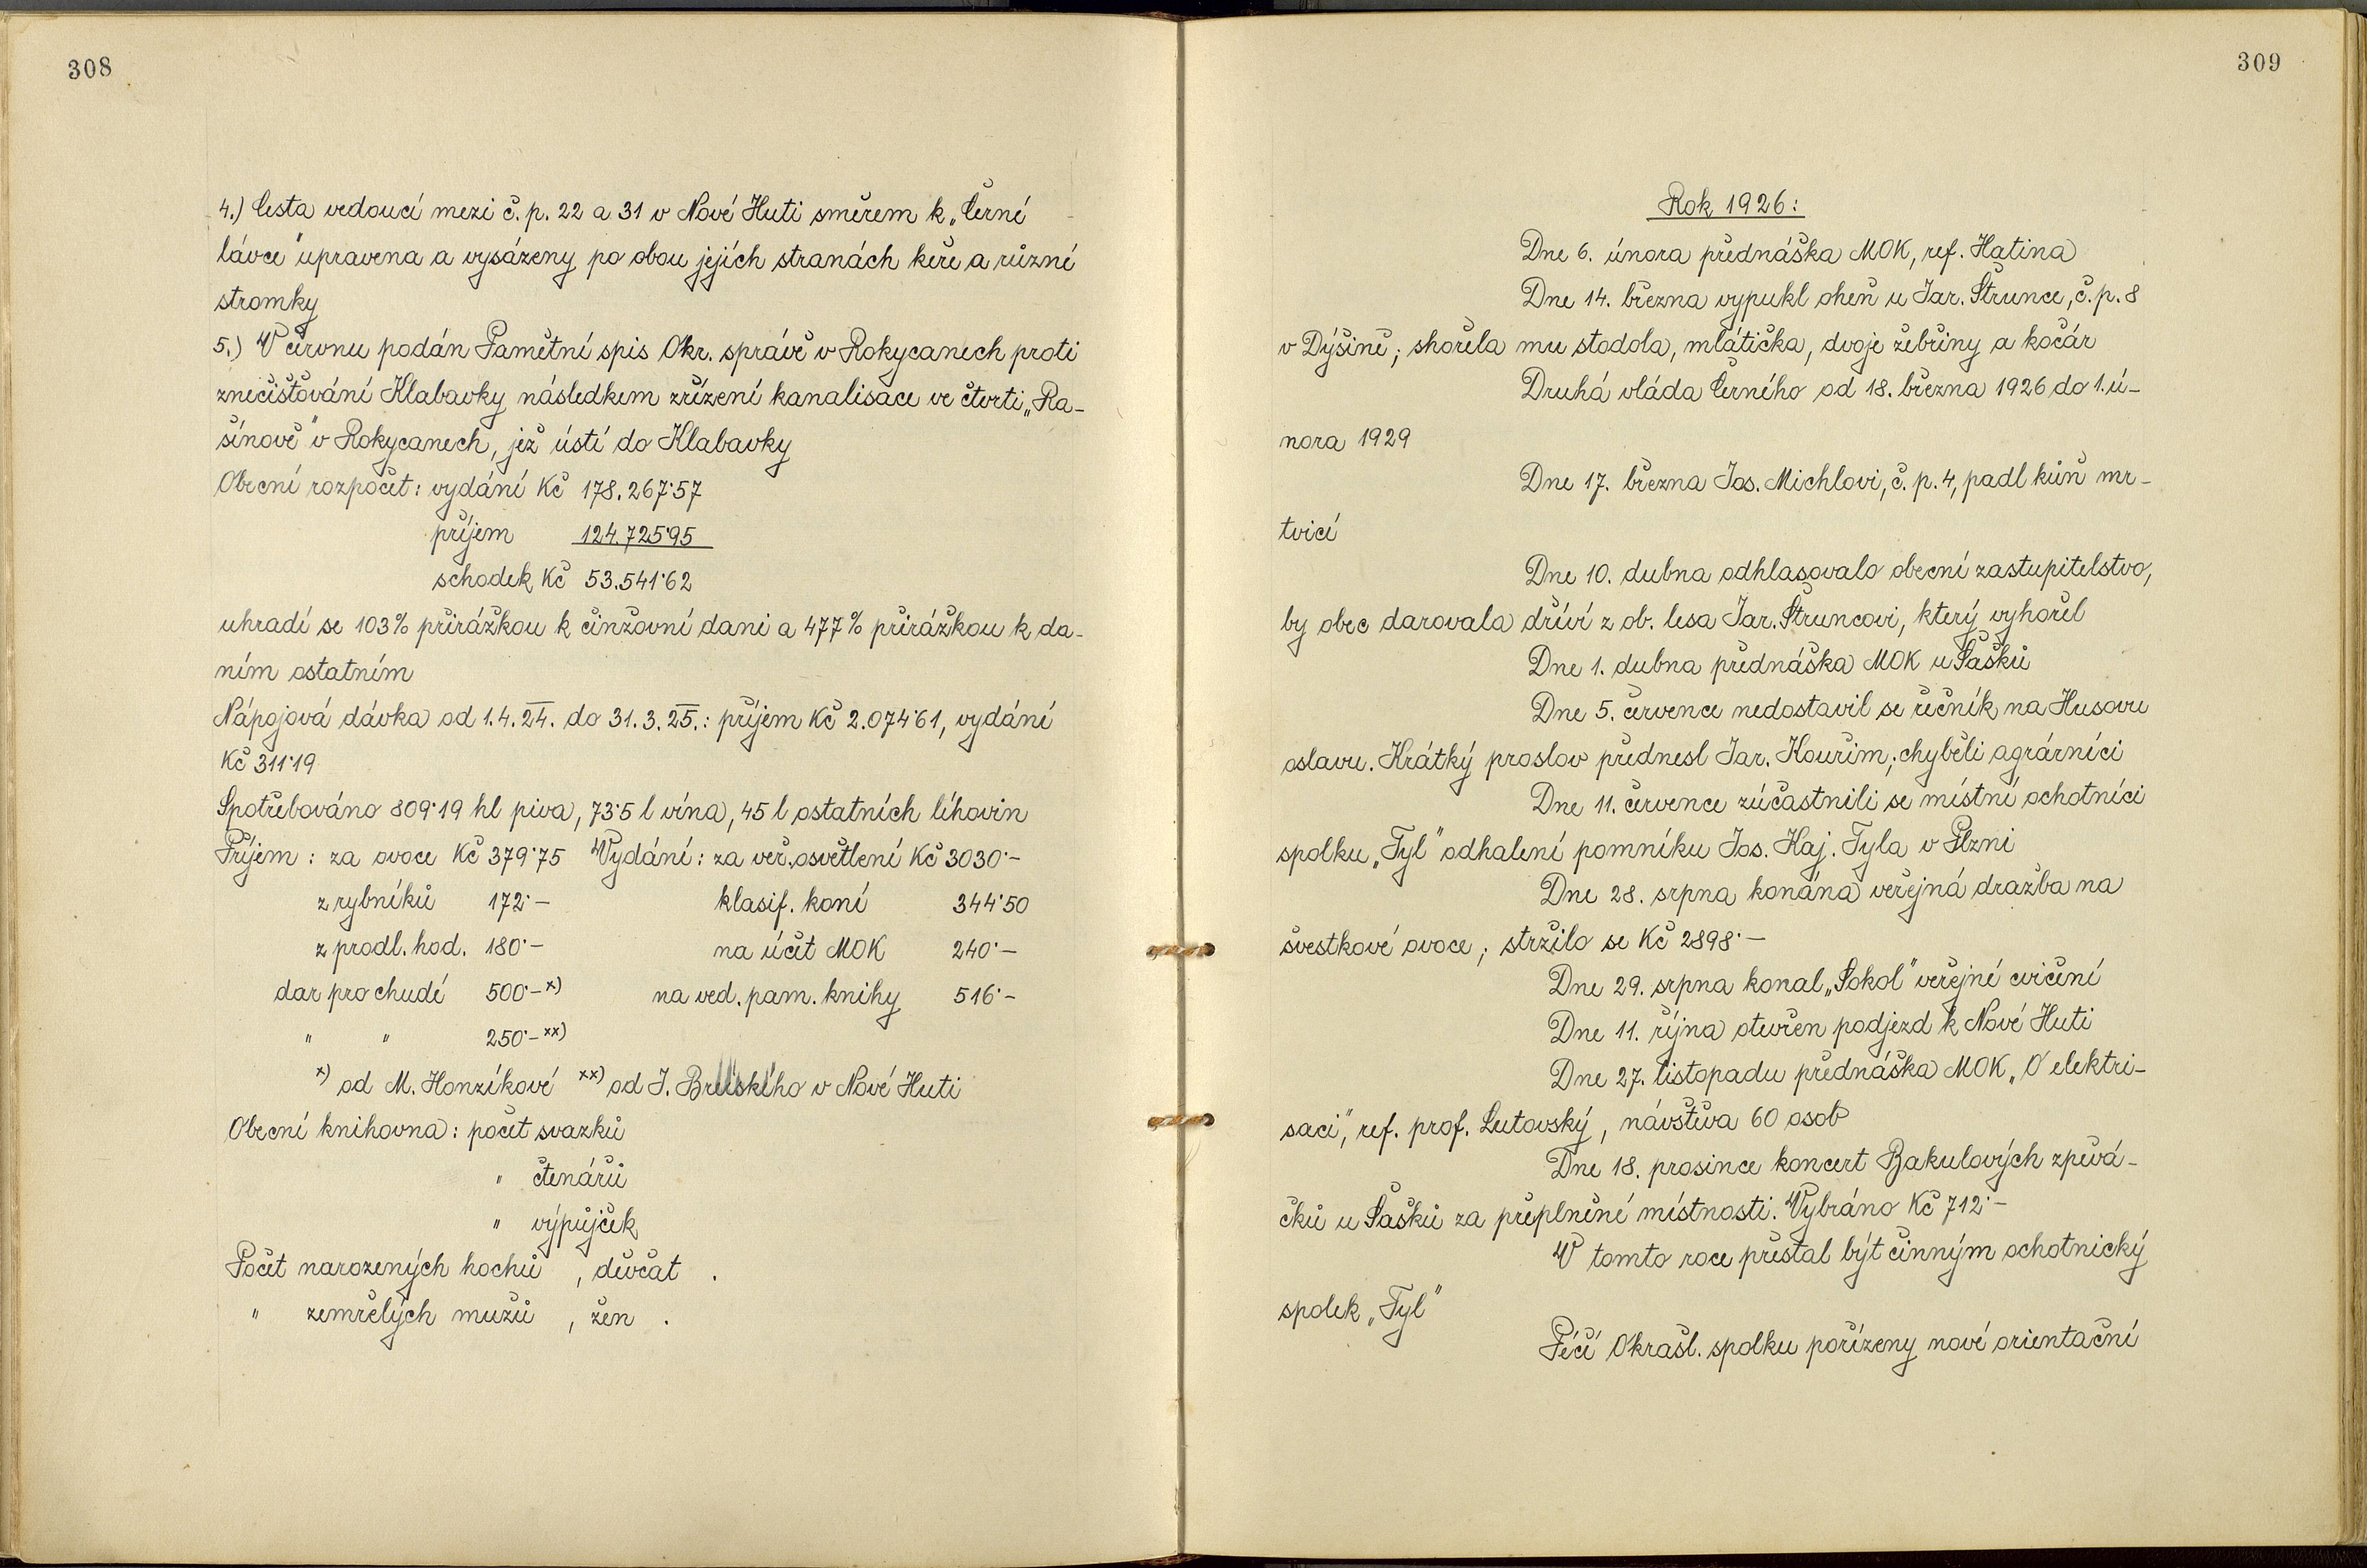 308
4.) Cesta vedoucí mezi č. p. 22 a 31 v Nové Huti směrem k „Černé
lávce" upravena a vysázeny po obou jejích stranách keře a různé
stromky
5.) V červnu podán Pamětní spis Okr. správě v Rokycanech proti
znečišťování Klabavky následkem zřízení kanalisace ve čtvrti „Ra-
šínově" v Rokycanech, jež ústí do Klabavky
Obecní rozpočet: vydání Kč 178.267·57
příjem 124.725·95
schodek Kč 53.541·62
uhradí se 103% přirážkou k činžovní dani a 477% přirážkou k da-
ním ostatním
Nápojová dávka od 1.4.24. do 31.3.25.: příjem Kč 2.074·61, vydání
Kč 311·19
Spotřebováno 809·19 hl piva, 73·5 l vína, 45 l ostatních líhovin
Příjem: za ovoce Kč 379·75 Vydání: za veř. osvětlení Kč 3030·-
z rybníků 172·- klasif. koní 344·50
z prodl. hod. 180·- na účet MOK 240·-
dar pro chudé 500·- x) na ved. pam. knihy 516·-
" " 250·- xx)
x) od M. Honzíkové xx) od J. v Nové Huti
Obecní knihovna: počet svazků
" čtenářů
" výpůjček
Počet narozených hochů , děvčat .
" zemřelých mužů , žen .
309
Rok 1926:
Dne 6. února přednáška MOK, ref. Hatina
Dne 14. března vypukl oheň u Jar. Štrunce, č. p. 8
v Dýšině; shořela mu stodola, mlátička, dvoje žebřiny a kočár
Druhá vláda Černého od 18. března 1926 do 1. ú-
nora 1929
Dne 17. března Jos. Michlovi, č. p. 4, padl kůň mr-
tvicí
Dne 10. dubna odhlasovalo obecní zastupitelstvo,
by obec darovala dříví z ob. lesa Jar. Štruncovi, který vyhořel
Dne 1. dubna přednáška MOK u Šašků
Dne 5. července nedostavil se řečník na Husovu
oslavu. Krátký proslov přednesl Jar. Kouřim; chyběli agrárníci
Dne 11. července zúčastnili se místní ochotníci
spolku „Tyl" odhalení pomníku Jos. Kaj. Tyla v Plzni
Dne 28. srpna konána veřejná dražba na
švestkové ovoce; stržilo se Kč 2898·-
Dne 29. srpna konal „Sokol" veřejné cvičení
Dne 11. října otevřen podjezd k Nové Huti
Dne 27. listopadu přednáška MOK „O elektri-
saci", ref. prof. Lutovský, návštěva 60 osob
Dne 18. prosince koncert Bakulových zpěvá-
čků u Šašků za přeplněné místnosti. Vybráno Kč 712·-
V tomto roce přestal být činným ochotnický
spolek „Tyl"
Péčí Okrašl. spolku pořízeny nové orientační